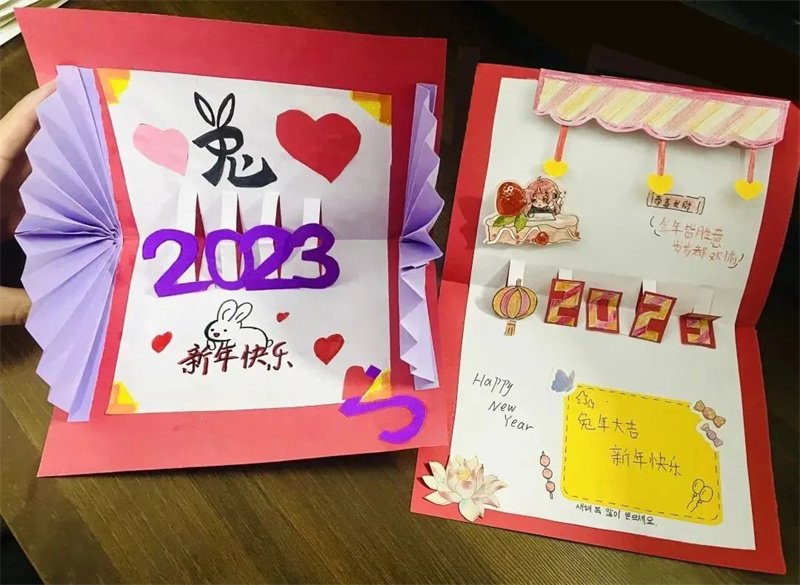 兔
2023
新年快乐
恭喜发财
年年皆胜意
岁岁都欢愉
2023
Happy
New
Year
兔年大吉
新年快乐
새해 복 많이 받으세요.